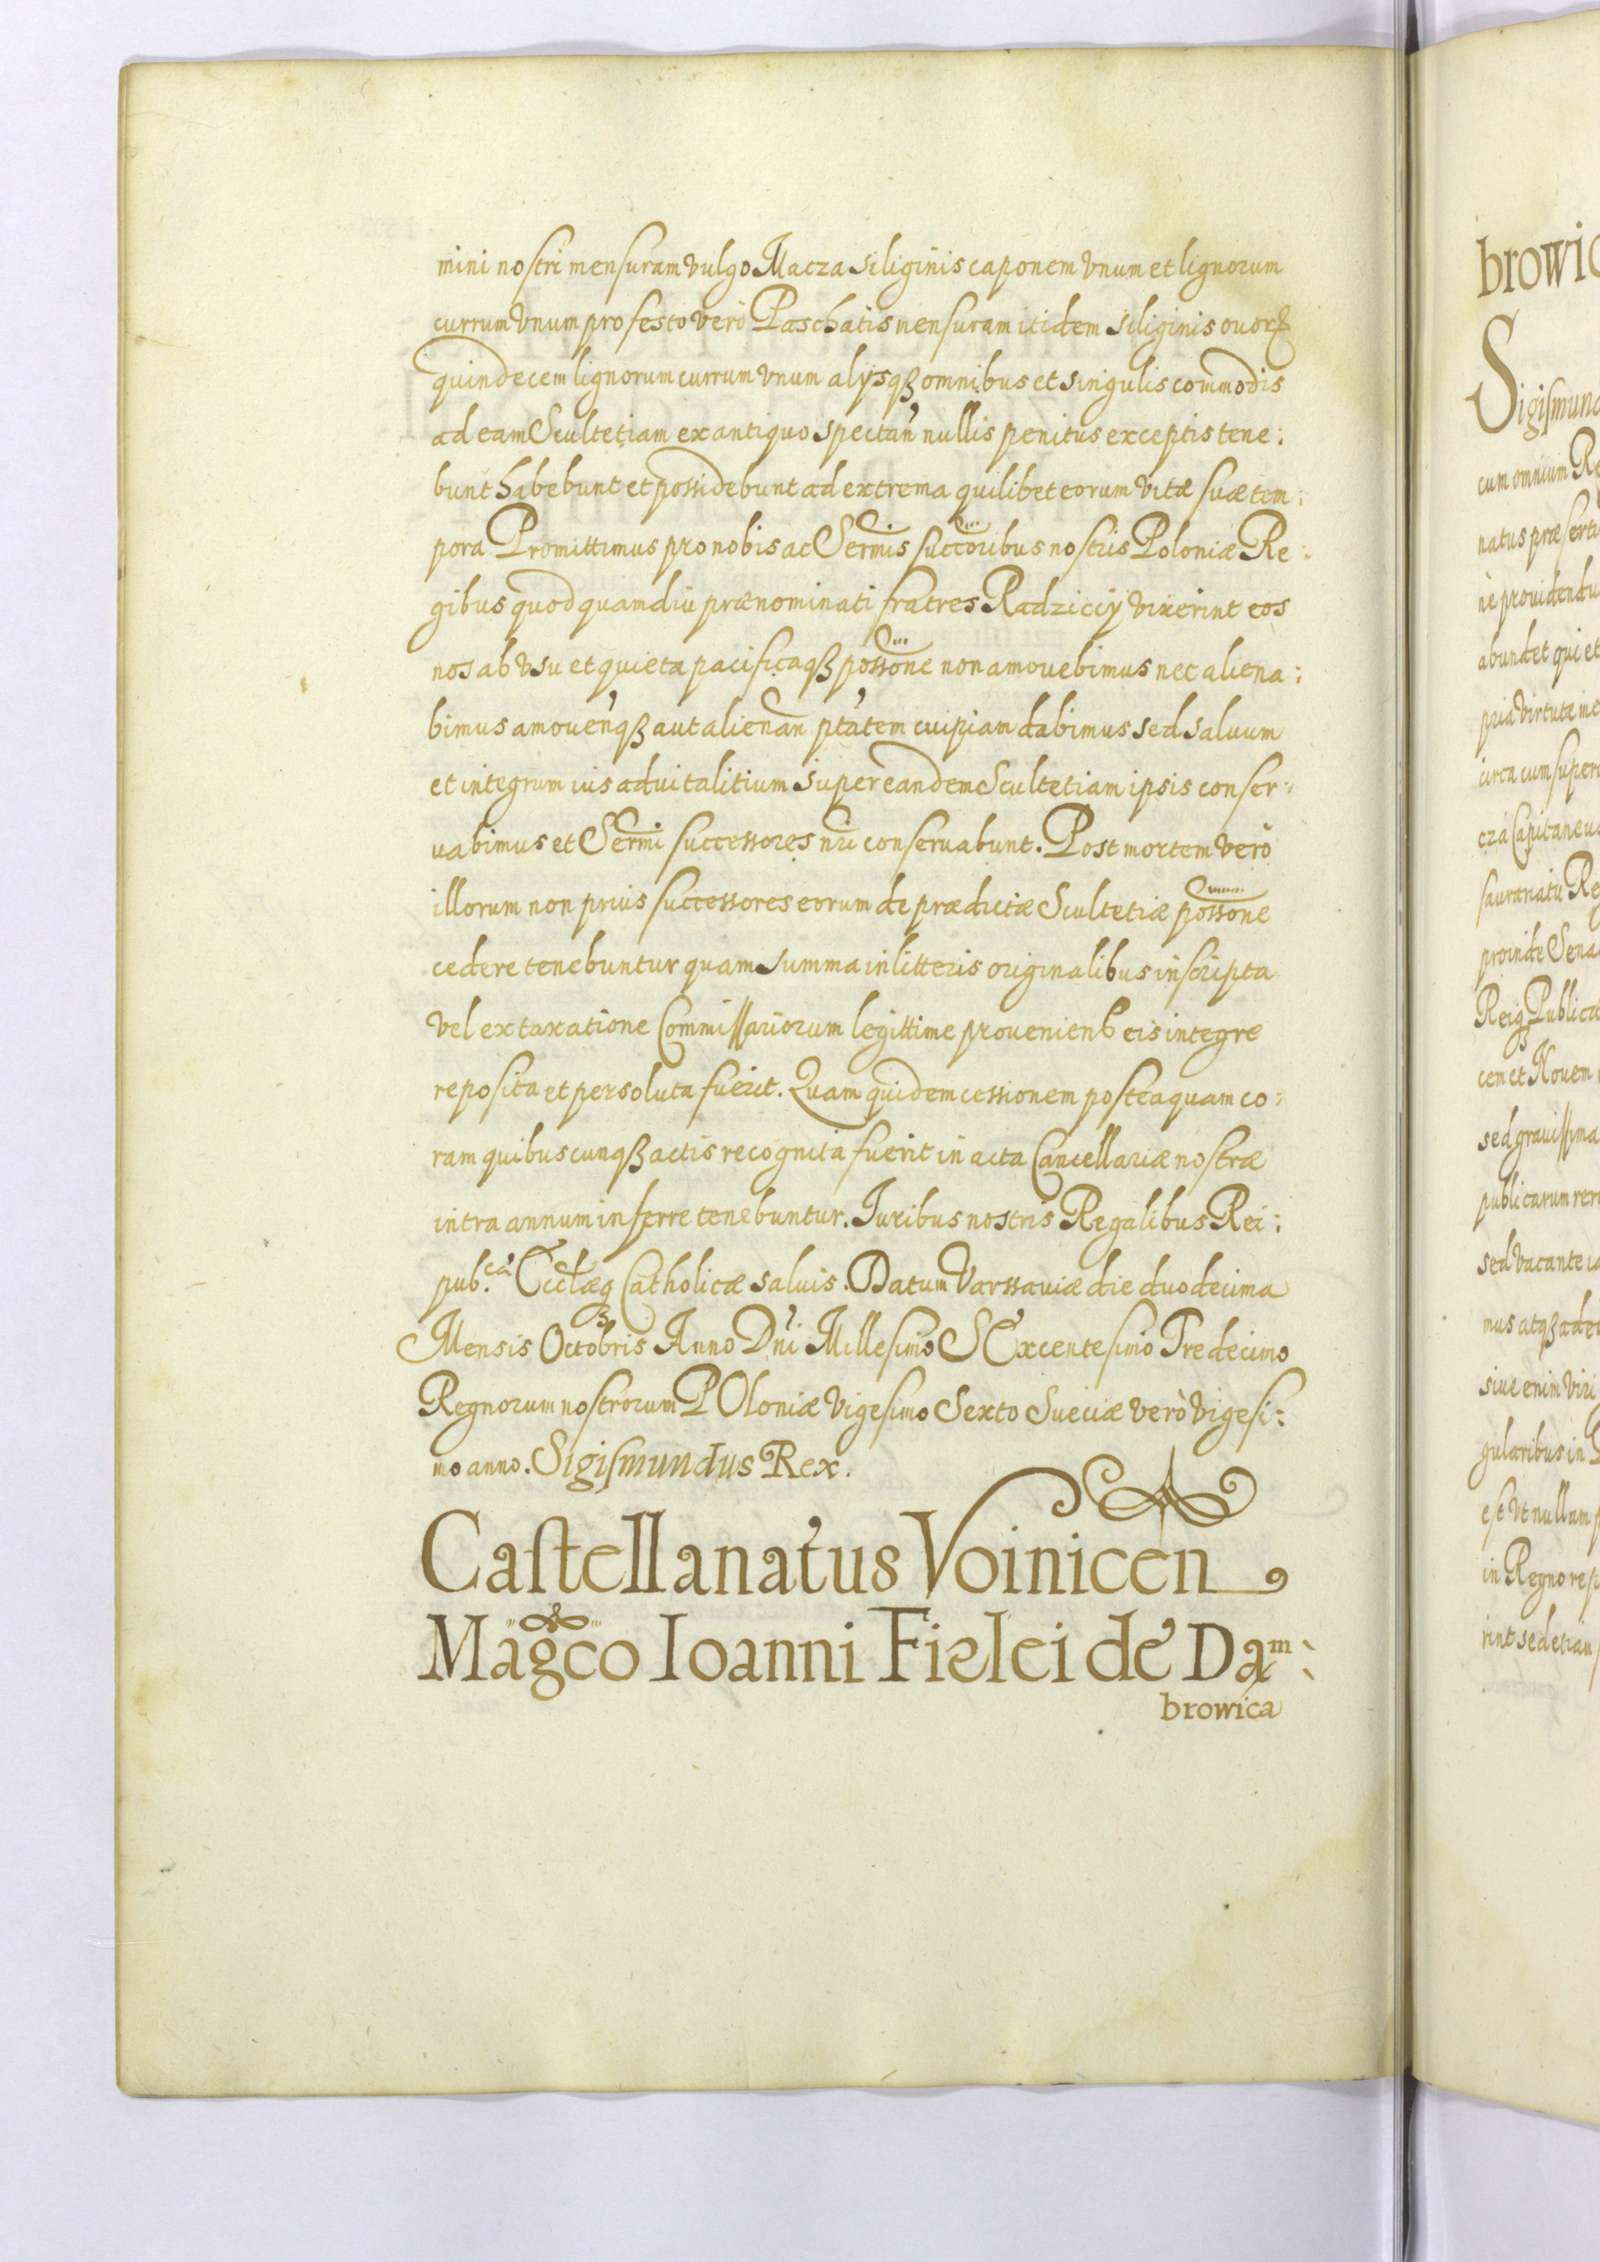 mini nostri mensuram vulgo Macza siliginis caponem vnum et lignorum
currum vnum pro festo verò Paschatis nensuram itidem siliginis ovorꝝ
quindecem lignorum currum vnum alijsqꝫ omnibus et singulis commodis
ad eam Scultetiam ex antiquo spectan̄ nullis penitus exceptis tene:
bunt habebunt et possidebunt ad extrema quilibet eorum vitæ suæ tem:
pora Promittimus pro nobis ac Sermis succoribus nostris Poloniæ Re:
gibus quod quamdiu prænominati fratres Radziccij vixerint eos
nos ab vsu et quieta pacificaqꝫ possone non amovebimus nec aliena:
bimus amoven̄qꝫ aut alienan̄ ptātem cuipiam dabimus sed salvum
et integrum ius advitalitium super eandem Scultetiam ipsis conser-
vabimus et Sermi successores nri conservabunt. Post mortem verò
illorum non prius successores eorum de prædictæ Scultetiæ possone
cedere tenebuntur quam summa in litteris originalibus inscripta
vel ex taxatione Commissariorum legittime provenien̄ eis integre
reposita et persoluta fuerit. Quam quidem cessionem posteaquam co:
ram quibuscunqꝫ actis recognita fuerit in acta Cancellariæ nostræ
intra annum inferre tenebuntur. Iuribus nostris Regalibus Rei:
pub.cæ Ecclæqꝫ Catholicæ salvis. Datum Varssaviæ die duodecima
Mensis Octobris Anno Dni Millesimo SExcentesimo Tredecimo
Regnorum nostrorum POloniæ vigesimo Sexto Sueciæ verò vigesi:
mo anno. Sigismundus Rex.
Castellanatus Voinicen
Magco Ioanni Firlei de Dam:
browica
browic
Sigismund
cum omnium Re
natus præserti
nè providendu
abundet qui et
pria virtute me
circa cum super
cza Capitaneus
sauratu Re
proinde Sena
Reiqꝫ Publicæ
cen et Novem
sed gravissima
publicarum reru
sed vacante
mus atqꝫ adeo
sive enim viri
gularibus in
est vt nullam
in Regno rep
rint sed etiam